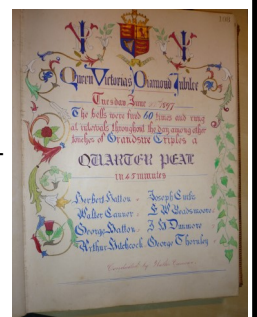 Queen Victoria's Diamond Jubilee
Tuesday June
The bells were fired 60 times and rung
at intervals throughout the day among other
touches of Grandsire Triples a
QUARTER PEAL
in 45 minutes
Herbert Hatton - Joseph
Walter Connor - E W Beadsmoore
George Hatton - J H Dunmore
Arthur Hitchcock George Thornley
Conducted by